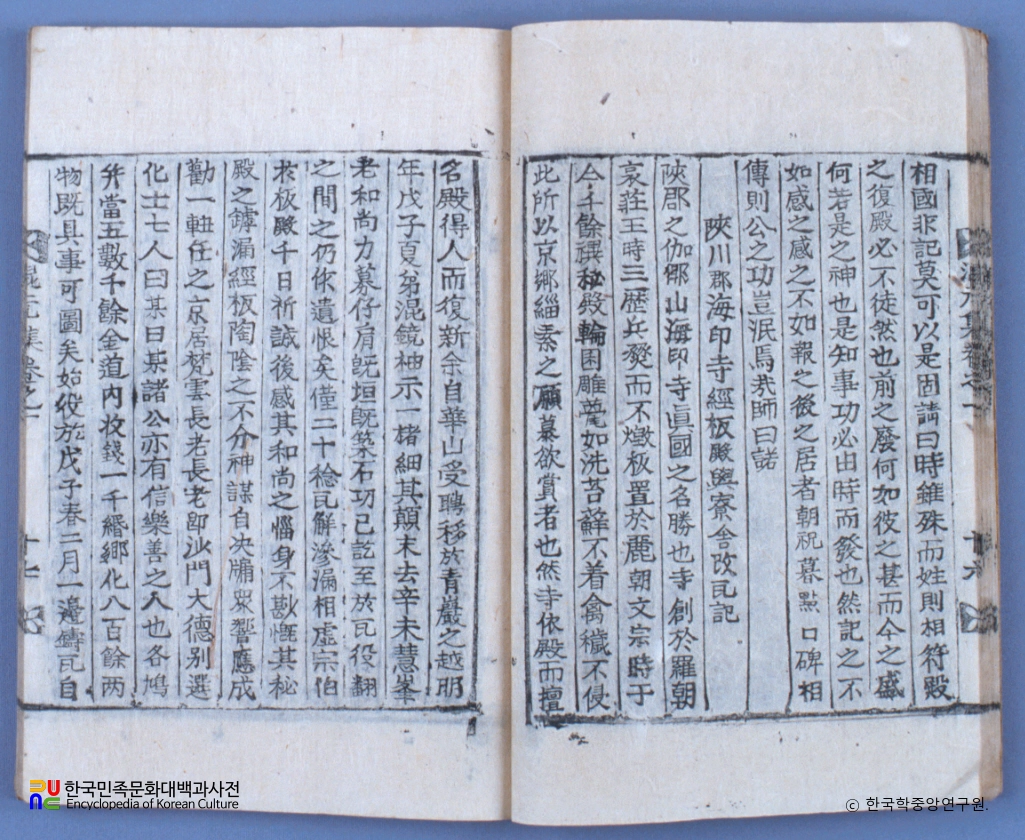 相國非記莫可以是固請曰時雖殊而姓則相符殿
之復殿必不徒然也前之廢何如彼之甚而今之盛
何若是之神也是知事功必由時而發也然記之不
如感之感之不如報之後之居者朝祝暮點口碑相
傳則公之功豈泯焉哉師曰諾
陜川郡海印寺經板殿與寮舍改瓦記
陜郡之伽倻山海印寺眞國之名勝也寺創於羅朝
哀莊王時三歷兵燹而不燬板置於麗朝文宗時于
今千餘禩秘殿輪囷雕甍如洗苔蘚不着禽穢不侵
此所以京鄉緇素之願慕欲賞者也然寺依殿而擅
名殿得人而復新余自華山受聘移於青巖之越明
年戊子夏弟混鏡袖示一楮細其顛末去辛未慧峯
老和尚力募仔肩旣垣旣築石功已訖至於瓦役翻
之間之仍作遺恨矣僅二十稔瓦解滲漏相虛宗伯
於板殿千日祈誠後感其和尚之惱身不敢慨其秘
殿之罅漏經板陶陰之不分神謀自决牖衆響應成
勸一軸任之京居梵雲長老長老卽沙門大德別選
化士七人曰某曰某諸公亦有信樂善之人也各鳩
弁當五數千餘金道內收錢一千緡鄉化八百餘两
物既具事可圖矣始役於戊子春二月一邊鑄瓦自
混元集卷之一
十六
한국민족문화대백과사전
Encyclopedia of Korean Culture
© 한국학중앙연구원.